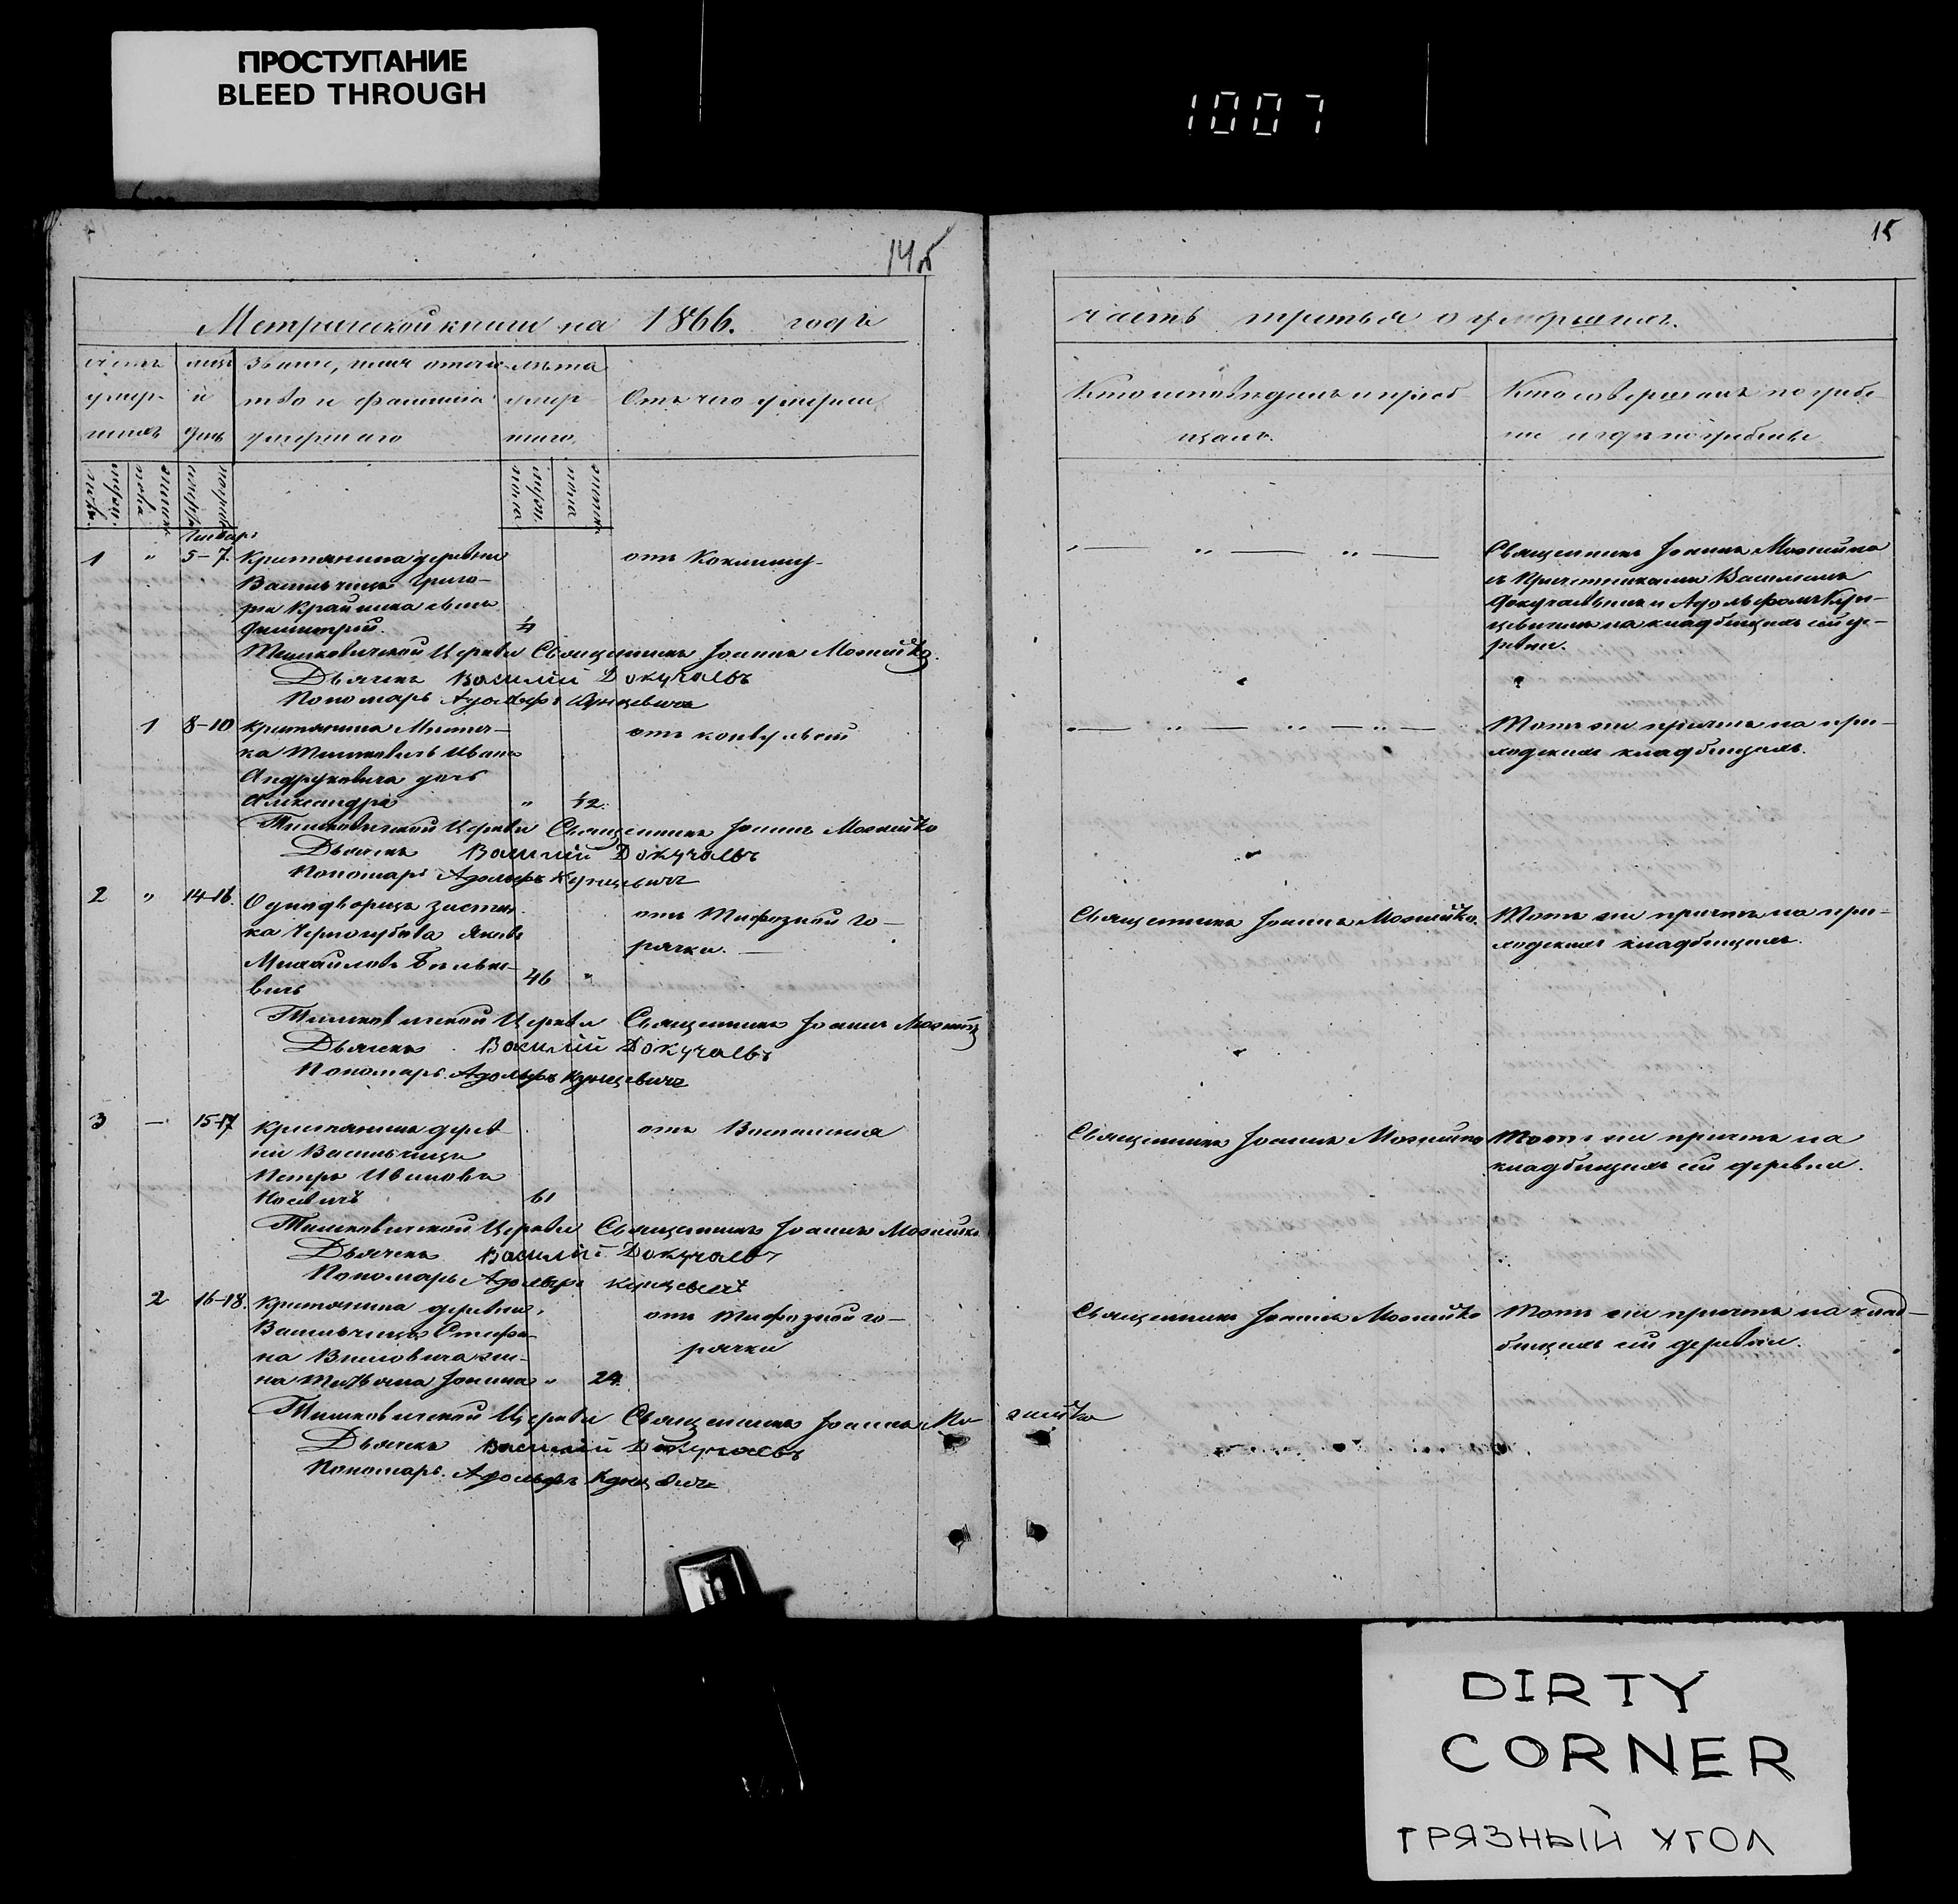 ПРОСТУПАНИЕ
BLEED THROUGH
1007
14об
15
Метрической книги на 1866. годъ
часть третья о умершихъ.
Счетъ умер- шихъ
мцъ и день
Званіе, имя отече- ство и фамилія умершаго
лѣта умер- шаго
Отъ чего умерли
Кто исповѣдалъ и пріоб- щалъ.
Кто совершалъ погребе- ніе и гдѣ погребены
Январь
1 " 5-7. Крестьянина деревни
Васильчицъ Григо-
рія Крайника сынъ
Димитрій.
отъ Коклишу
Священникъ Іоаннъ Можейко
съ Причетниками Василіемъ
Докучаевымъ и Адольфомъ Кун-
цевичемъ на кладбищѣ сей де-
ревни.
Тишковичской Церкви Священникъ Іоаннъ Можейко.
Дьячекъ Василій Докучаевъ
Пономарь Адольфъ Кунцевичъ
1 8-10 Крестьянина Мѣстеч-
ка Тишковичъ Ивана
Андруковича дочь
Александра " 1/2.
отъ конвульсій
Тотъ же причтъ на при-
ходскомъ кладбищѣ.
Тишковичской Церкви Священникъ Іоаннъ Можейко
Дьячекъ Василій Докучаевъ
Пономарь Адольфъ Кунцевичъ
2 " 14-16. Однодворецъ застѣн-
ка Яковъ
Михайловъ
вичъ 46 "
отъ Тифозной го-
рячки.
Священникъ Іоаннъ Можейко.
Тотъ же причтъ на при-
ходскомъ кладбищѣ.
Тишковичской Церкви Священникъ Іоаннъ Можейко
Дьячекъ Василій Докучаевъ
Пономарь Адольфъ Кунцевичъ
3 — 15-17 Крестьянинъ дерев-
ни Васильчицъ
Петръ Ивановъ
61
отъ Воспаленія
Священникъ Іоаннъ Можейко
Тотъ же причтъ на
кладбищѣ сей деревни.
Тишковичской Церкви Священникъ Іоаннъ Можейко
Дьячекъ Василій Докучаевъ
Пономарь Адольфъ Кунцевичъ
2 16-18. Крестьянина деревни
Васильчицъ Стефа-
на же-
на Татьяна " 24.
отъ Тифозной го-
рячки
Священникъ Іоаннъ Можейко
Тотъ же причтъ на клад-
бищѣ сей деревни.
Тишковичской Церкви Священникъ Іоаннъ Мо- жейко
Дьячекъ Василій Докучаевъ
Пономарь Адольфъ Кунцевичъ
DIRTY
CORNER
ГРЯЗНЫЙ УГОЛ